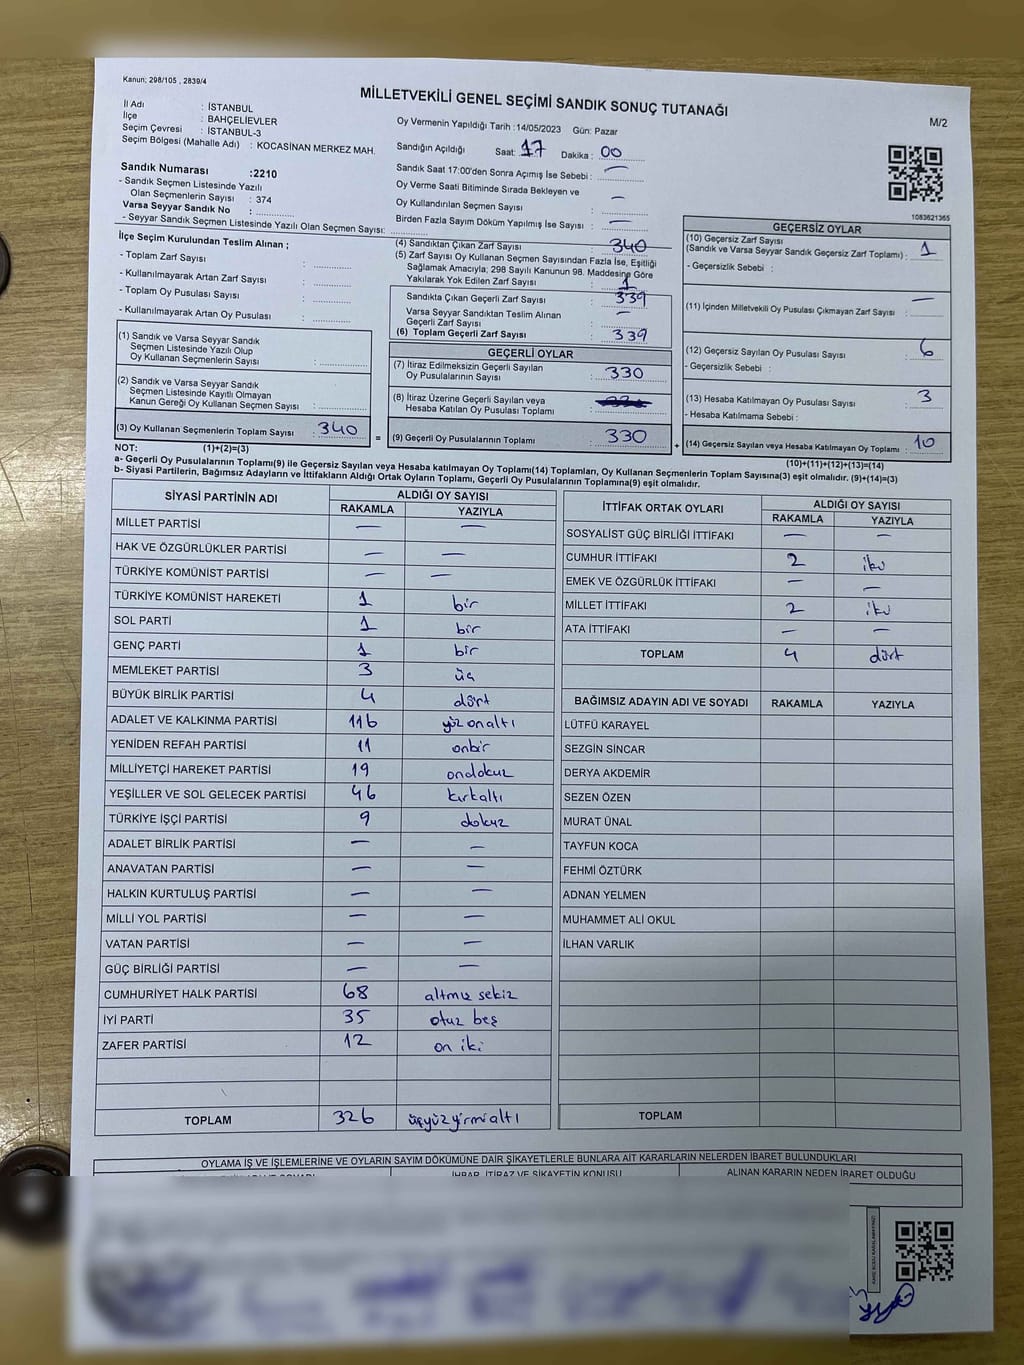 Kanun; 298/105 , 2839/4
MİLLETVEKİLİ GENEL SEÇİMİ SANDIK SONUÇ TUTANAĞI
M/2
İl Adı : İSTANBUL
İlçe : BAHÇELİEVLER
Seçim Çevresi : İSTANBUL-3
Seçim Bölgesi (Mahalle Adı) : KOCASİNAN MERKEZ MAH.
Oy Vermenin Yapıldığı Tarih :14/05/2023 Gün: Pazar
Sandığın Açıldığı Saat: 17 Dakika : 00
Sandık Saat 17:00'den Sonra Açılmış İse Sebebi : —
Oy Verme Saati Bitiminde Sırada Bekleyen ve
Oy Kullandırılan Seçmen Sayısı : —
Birden Fazla Sayım Döküm Yapılmış İse Sayısı : —
Sandık Numarası :2210
- Sandık Seçmen Listesinde Yazılı
Olan Seçmenlerin Sayısı : 374
Varsa Seyyar Sandık No :
- Seyyar Sandık Seçmen Listesinde Yazılı Olan Seçmen Sayısı:
1083621365
İlçe Seçim Kurulundan Teslim Alınan ;
- Toplam Zarf Sayısı :
- Kullanılmayarak Artan Zarf Sayısı :
- Toplam Oy Pusulası Sayısı :
- Kullanılmayarak Artan Oy Pusulası :
(1) Sandık ve Varsa Seyyar Sandık
Seçmen Listesinde Yazılı Olup
Oy Kullanan Seçmenlerin Sayısı :
(2) Sandık ve Varsa Seyyar Sandık
Seçmen Listesinde Kayıtlı Olmayan
Kanun Gereği Oy Kullanan Seçmen Sayısı :
(3) Oy Kullanan Seçmenlerin Toplam Sayısı : 340
(1)+(2)=(3)
(4) Sandıktan Çıkan Zarf Sayısı : 340
(5) Zarf Sayısı Oy Kullanan Seçmen Sayısından Fazla İse, Eşitliği
Sağlamak Amacıyla; 298 Sayılı Kanunun 98. Maddesine Göre
Yakılarak Yok Edilen Zarf Sayısı : 1
Sandıkta Çıkan Geçerli Zarf Sayısı : 339
Varsa Seyyar Sandıktan Teslim Alınan
Geçerli Zarf Sayısı : —
(6) Toplam Geçerli Zarf Sayısı : 339
GEÇERLİ OYLAR
(7) İtiraz Edilmeksizin Geçerli Sayılan
Oy Pusulalarının Sayısı : 330
(8) İtiraz Üzerine Geçerli Sayılan veya
Hesaba Katılan Oy Pusulası Toplamı :
= (9) Geçerli Oy Pusulalarının Toplamı : 330 +
GEÇERSİZ OYLAR
(10) Geçersiz Zarf Sayısı
(Sandık ve Varsa Seyyar Sandık Geçersiz Zarf Toplamı) : 1
- Geçersizlik Sebebi :
(11) İçinden Milletvekili Oy Pusulası Çıkmayan Zarf Sayısı : —
(12) Geçersiz Sayılan Oy Pusulası Sayısı : 6
- Geçersizlik Sebebi :
(13) Hesaba Katılmayan Oy Pusulası Sayısı : 3
- Hesaba Katılmama Sebebi :
(14) Geçersiz Sayılan veya Hesaba Katılmayan Oy Toplamı : 10
(10)+(11)+(12)+(13)=(14)
NOT:
a- Geçerli Oy Pusulalarının Toplamı(9) ile Geçersiz Sayılan veya Hesaba katılmayan Oy Toplamı(14) Toplamları, Oy Kullanan Seçmenlerin Toplam Sayısına(3) eşit olmalıdır. (9)+(14)=(3)
b- Siyasi Partilerin, Bağımsız Adayların ve İttifakların Aldığı Ortak Oyların Toplamı, Geçerli Oy Pusulalarının Toplamına(9) eşit olmalıdır.
SİYASİ PARTİNİN ADI ALDIĞI OY SAYISI
RAKAMLA YAZIYLA
MİLLET PARTİSİ — —
HAK VE ÖZGÜRLÜKLER PARTİSİ — —
TÜRKİYE KOMÜNİST PARTİSİ — —
TÜRKİYE KOMÜNİST HAREKETİ 1 bir
SOL PARTİ 1 bir
GENÇ PARTİ 1 bir
MEMLEKET PARTİSİ 3 üç
BÜYÜK BİRLİK PARTİSİ 4 dört
ADALET VE KALKINMA PARTİSİ 116 yüz onaltı
YENİDEN REFAH PARTİSİ 11 onbir
MİLLİYETÇİ HAREKET PARTİSİ 19 ondokuz
YEŞİLLER VE SOL GELECEK PARTİSİ 46 kırkaltı
TÜRKİYE İŞÇİ PARTİSİ 9 dokuz
ADALET BİRLİK PARTİSİ — —
ANAVATAN PARTİSİ — —
HALKIN KURTULUŞ PARTİSİ — —
MİLLİ YOL PARTİSİ — —
VATAN PARTİSİ — —
GÜÇ BİRLİĞİ PARTİSİ — —
CUMHURİYET HALK PARTİSİ 68 altmış sekiz
İYİ PARTİ 35 otuz beş
ZAFER PARTİSİ 12 on iki
TOPLAM 326 üçyüzyirmialtı
İTTİFAK ORTAK OYLARI ALDIĞI OY SAYISI
RAKAMLA YAZIYLA
SOSYALİST GÜÇ BİRLİĞİ İTTİFAKI — —
CUMHUR İTTİFAKI 2 iki
EMEK VE ÖZGÜRLÜK İTTİFAKI — —
MİLLET İTTİFAKI 2 iki
ATA İTTİFAKI — —
TOPLAM 4 dört
BAĞIMSIZ ADAYIN ADI VE SOYADI RAKAMLA YAZIYLA
LÜTFÜ KARAYEL
SEZGİN SİNCAR
DERYA AKDEMİR
SEZEN ÖZEN
MURAT ÜNAL
TAYFUN KOCA
FEHMİ ÖZTÜRK
ADNAN YELMEN
MUHAMMET ALİ OKUL
İLHAN VARLIK
TOPLAM
OYLAMA İŞ VE İŞLEMLERİNE VE OYLARIN SAYIM DÖKÜMÜNE DAİR ŞİKAYETLERLE BUNLARA AİT KARARLARIN NELERDEN İBARET BULUNDUKLARI
İHBAR, İTİRAZ VE ŞİKAYETİN KONUSU ALINAN KARARIN NEDEN İBARET OLDUĞU